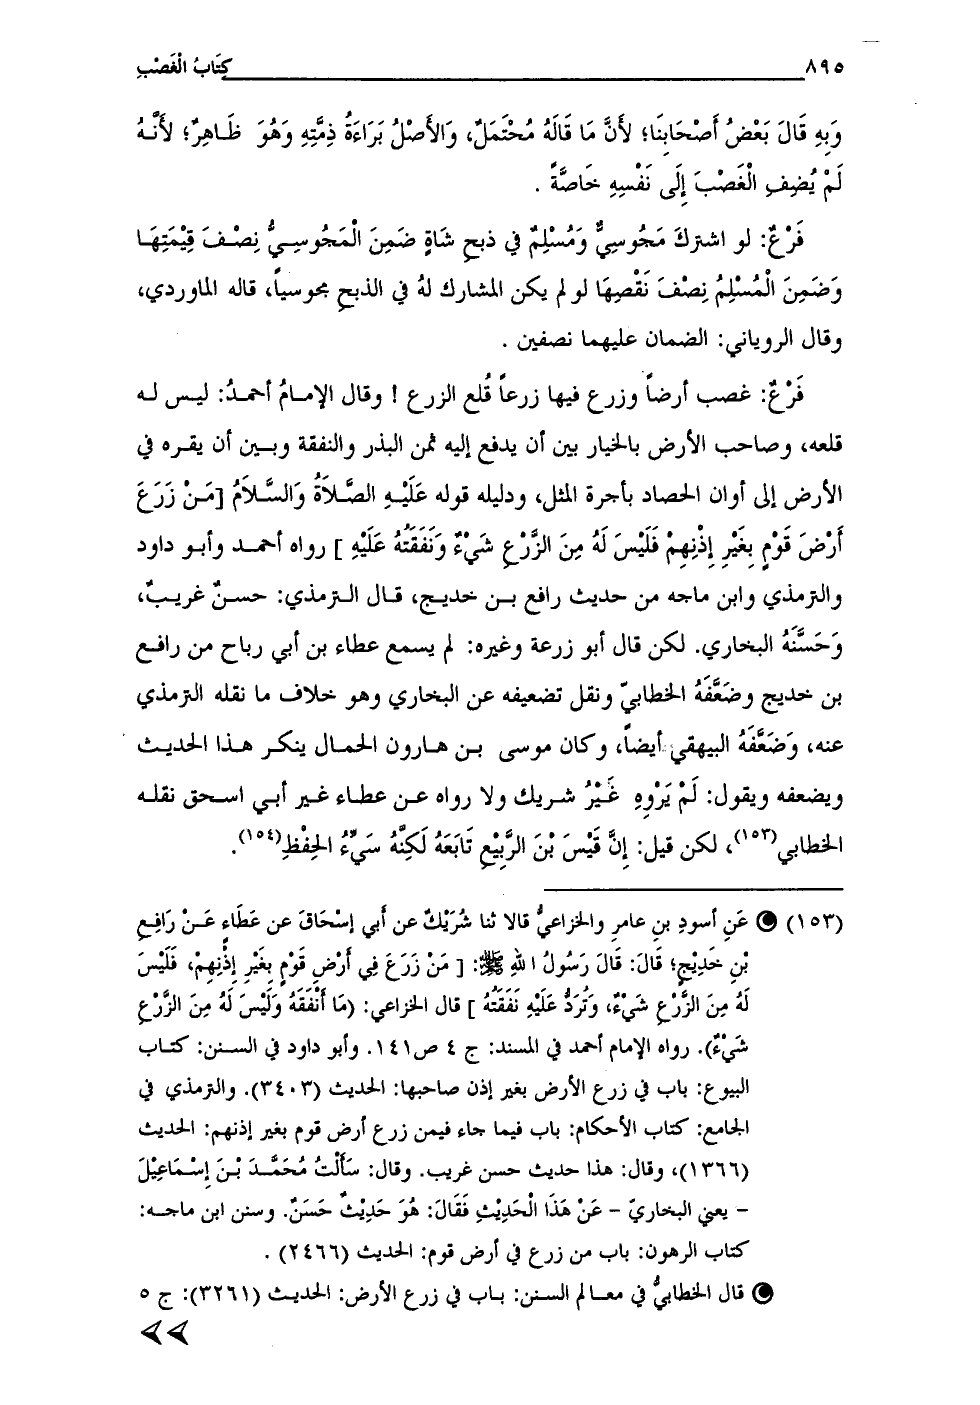 ٨٩٥ كتَابُ الْغَصْبِ
وَبِهِ قَالَ بَعْضُ أَصْحَابِنَا؛ لأَنَّ مَا قَالَهُ مُحْتَمَلٌ، وَالأَصْلُ بَرَاءَةُ ذِمَّتِهِ وَهُوَ ظَاهِرٌ؛ لأَنَّهُ
لَمْ يُضِفِ الْغَصْبَ إِلَى نَفْسِهِ خَاصَّةً .
فَرْعٌ: لو اشتركَ مَجُوسِيٌّ وَمُسْلِمٌ في ذبحِ شَاةٍ ضَمِنَ الْمَجُوسِيُّ نِصْفَ قِيْمَتِهَا
وَضَمِنَ الْمُسْلِمُ نِصْفَ نَقْصِهَا لو لم يكن المشارك لهُ في الذبحِ مجوسياً، قاله الماوردي،
وقال الروياني: الضمان عليهما نصفين .
فَرْعٌ: غصب أرضاً وزرع فيها زرعاً قُلع الزرع ! وقال الإمامُ أحمدُ: ليس له
قلعه، وصاحب الأرض بالخيار بين أن يدفع إليه ثمن البذر والنفقة وبين أن يقره في
الأرض إلى أوان الحصاد بأجرة المثل، ودليله قوله عَلَيْهِ الصَّلاَةُ وَالسَّلاَمُ [مَنْ زَرَعَ
أَرْضَ قَوْمٍ بِغَيْرِ إِذْنِهِمْ فَلَيْسَ لَهُ مِنَ الزَّرْعِ شَيْءٌ وَنَفَقَتُهُ عَلَيْهِ ] رواه أحمد وأبو داود
والترمذي وابن ماجه من حديث رافع بن خديج، قال الترمذي: حسنٌ غريبٌ،
وَحَسَّنَهُ البخاري. لكن قال أبو زرعة وغيره: لم يسمع عطاء بن أبي رباح من رافع
بن خديج وضَعَّفَهُ الخطابيّ ونقل تضعيفه عن البخاري وهو خلاف ما نقله الترمذي
عنه، وَضَعَّفَهُ البيهقي أيضاً، وكان موسى بن هارون الحمال ينكر هذا الحديث
ويضعفه ويقول: لَمْ يَرْوِهِ غَيْرُ شريك ولا رواه عن عطاء غير أبي اسحق نقله
الخطابي(١٥٣)، لكن قيل: إِنَّ قَيْسَ بْنَ الرَّبِيْعِ تَابَعَهُ لَكِنَّهُ سَيِّءُ الحِفْظِ(١٥٤).
(١٥٣) عَنِ أسودِ بنِ عامرِ والخزاعيُّ قالا ثنا شُرَيْكٌ عن أبي إِسْحَاقَ عن عَطَاءٍ عَنْ رَافِعِ
بْنِ خَدِيْجٍ؛ قَالَ: قَالَ رَسُولُ اللهِ ﷺ: [ مَنْ زَرَعَ فِي أَرْضِ قَوْمٍ بِغَيْرِ إِذْنِهِمْ، فَلَيْسَ
لَهُ مِنَ الزَّرْعِ شَيْءٌ، وَتُرَدُّ عَلَيْهِ نَفَقَتُهُ ] قال الخزاعي: (مَا أَنْفَقَهُ وَلَيْسَ لَهُ مِنَ الزَّرْعِ
شَيْءٌ). رواه الإمام أحمد في المسند: ج ٤ ص١٤١. وأبو داود في السنن: كتاب
البيوع: باب في زرع الأرض بغير إذن صاحبها: الحديث (٣٤٠٣). والترمذي في
الجامع: كتاب الأحكام: باب فيما جاء فيمن زرع أرض قوم بغير إذنهم: الحديث
(١٣٦٦)، وقال: هذا حديث حسن غريب. وقال: سَأَلْتُ مُحَمَّدَ بْنَ إِسْمَاعِيْلَ
– يعني البخاريّ – عَنْ هَذَا الْحَدِيْثِ فَقَالَ: هُوَ حَدِيْثٌ حَسَنٌ. وسنن ابن ماجه:
كتاب الرهون: باب من زرع في أرض قوم: الحديث (٢٤٦٦) .
قال الخطابيُّ في معالم السنن: باب في زرع الأرض: الحديث (٣٢٦١): ج ٥